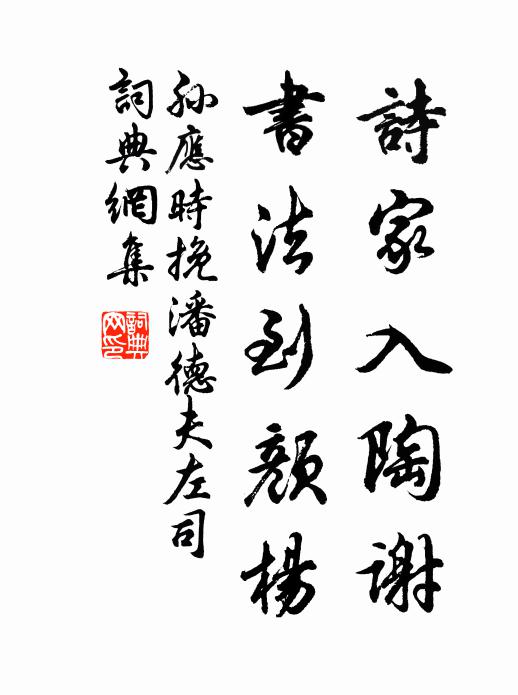 詩家入陶謝
書法到顏楊
孫應時挽潘德夫左司
詞典網集
詞典網印